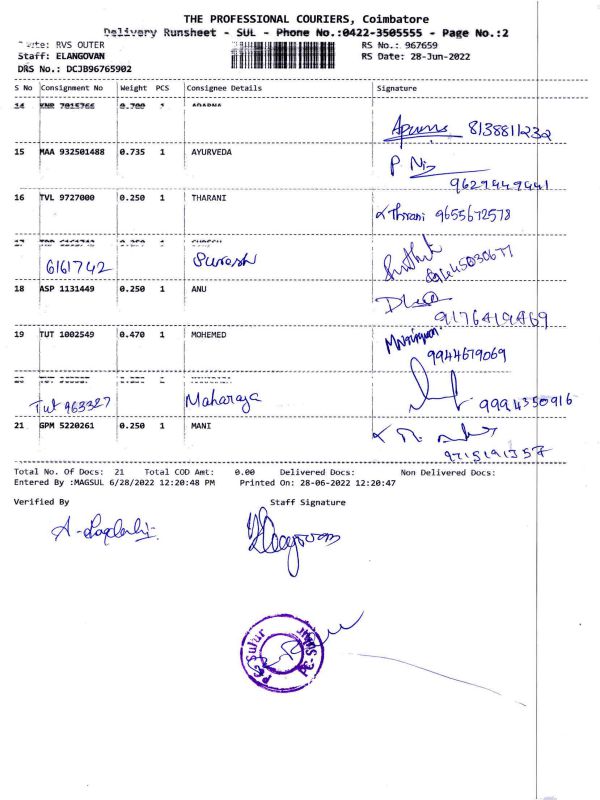 THE PROFESSIONAL COURIERS, Coimbatore
Delivery Runsheet - SUL - Phone No.:0422-3505555 - Page No.:2
RVS OUTER RS No.: 967659
Staff: ELANGOVAN RS Date: 28-Jun-2022
DRS No.: DCJB96765902
S No Consignment No Weight PCS Consignee Details Signature
14 KNR 7015766 0.700 1
8138811232
15 MAA 932501488 0.735 1 AYURVEDA
9629449441
16 TVL 9727000 0.250 1 THARANI
Tharani 9655672578
17
6161742 Suresh
18 ASP 1131449 0.250 1 ANU
9176419469
19 TUT 1002549 0.470 1 MOHEMED
9944679069
Tut 963327 Maharaja 9994350916
21 GPM 5220261 0.250 1 MANI
9715191357
Total No. Of Docs: 21 Total COD Amt: 0.00 Delivered Docs: Non Delivered Docs:
Entered By :MAGSUL 6/28/2022 12:20:48 PM Printed On: 28-06-2022 12:20:47
Verified By Staff Signature
Sulur